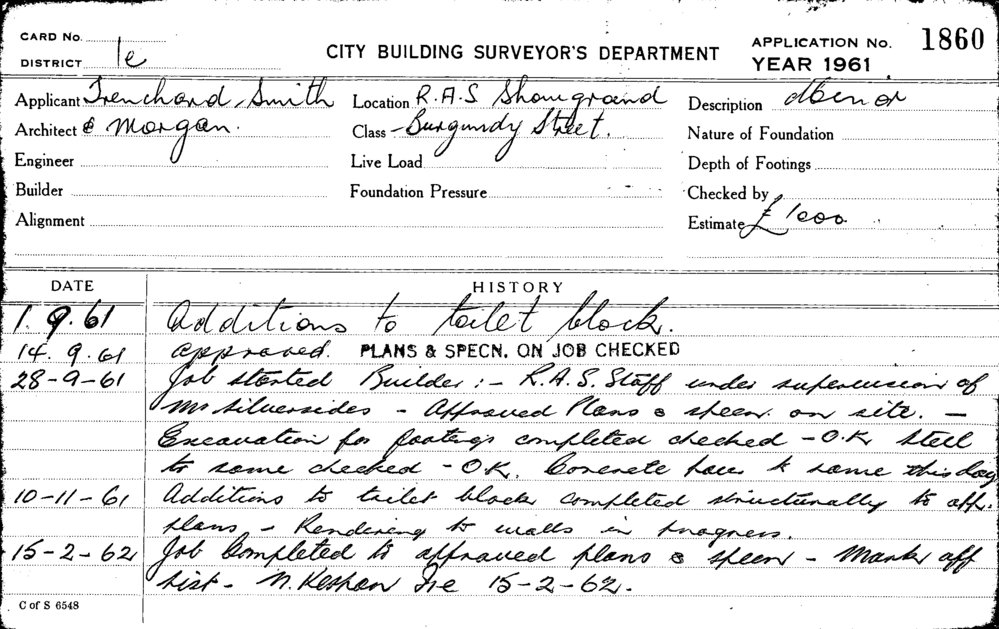 CARD No.
DISTRICT 1e
CITY BUILDING SURVEYOR'S DEPARTMENT
APPLICATION No. 1860
YEAR 1961
Applicant Trenchard, Smith
Location R.A.S Showground
Description Minor
Architect & Morgan.
Class - Burgundy Street.
Nature of Foundation
Engineer
Live Load
Depth of Footings
Builder
Foundation Pressure
Checked by
Alignment
Estimate £1000
DATE
HISTORY
1. 9. 61 Additions to toilet block.
14. 9. 61 approved. PLANS & SPECN. ON JOB CHECKED
28-9-61 Job started Builder :- R.A.S. Staff under supervision of
Mr Silversides - Approved Plans & specn. on site. -
Excavation for footings completed checked - O.K. Steel
to same checked - O.K. Concrete to same this day
10-11-61 Additions to toilet block completed structurally to app.
plans - Rendering to walls in progress.
15-2-62 Job Completed to approved plans & specn - Mark off
list - 15-2-62.
C of S 6548